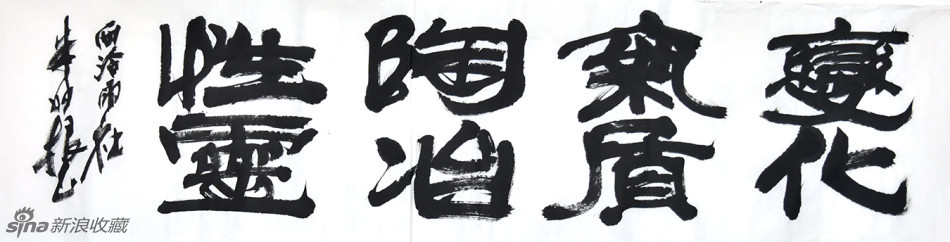 變化
氣質
陶冶
性靈
西泠雨社
sina 新浪收藏